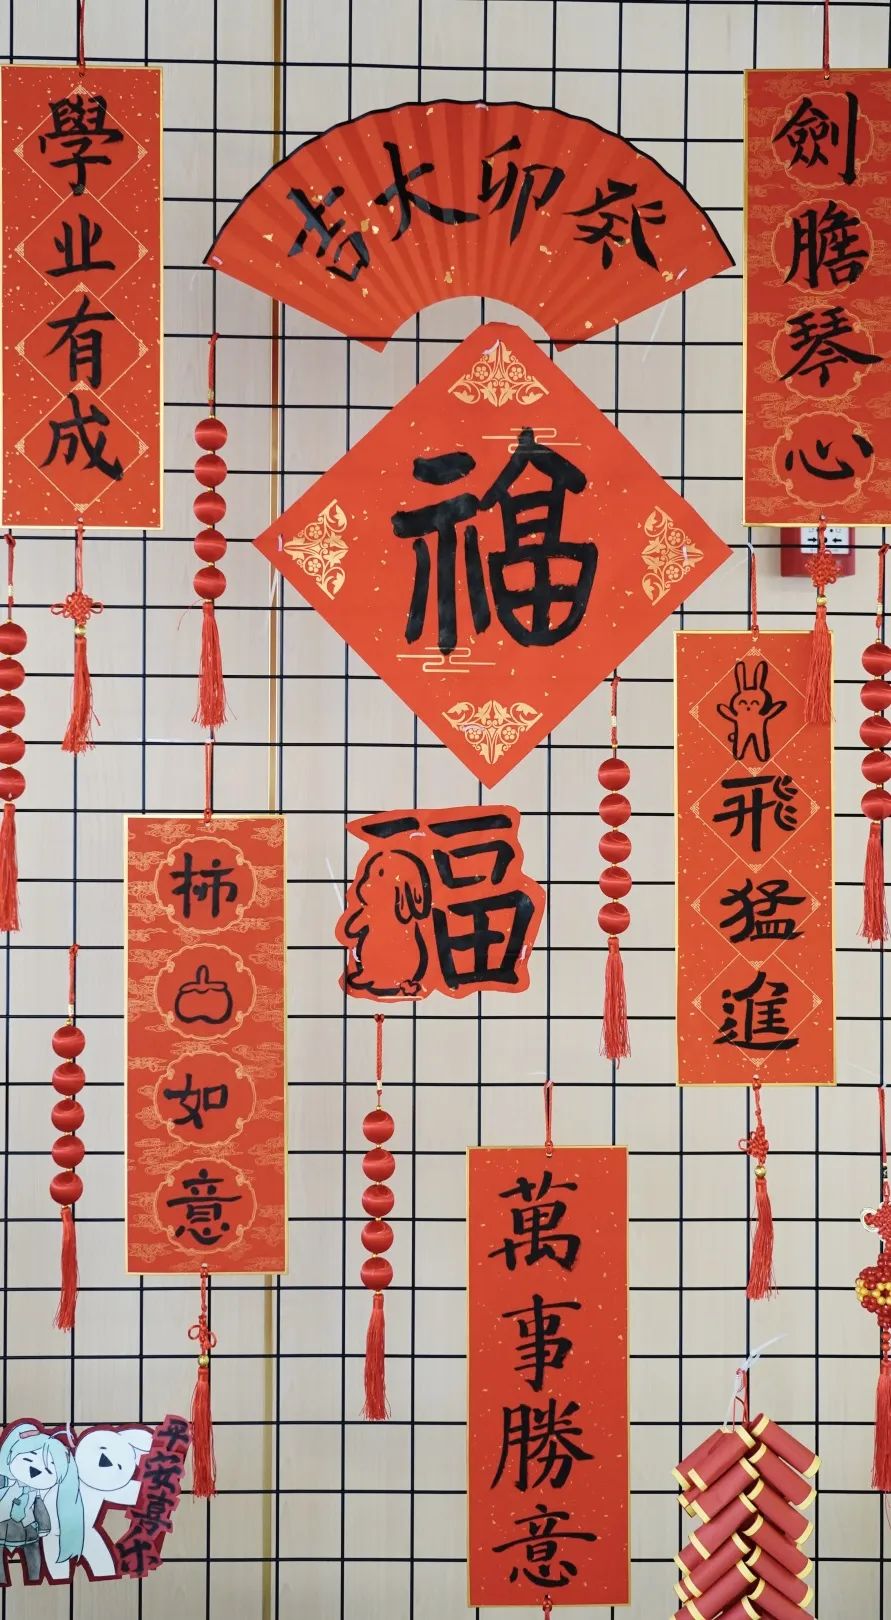 學业有成
癸卯大吉
劍膽琴心
福
飛猛進
福
柿如意
萬事勝意
平安喜乐